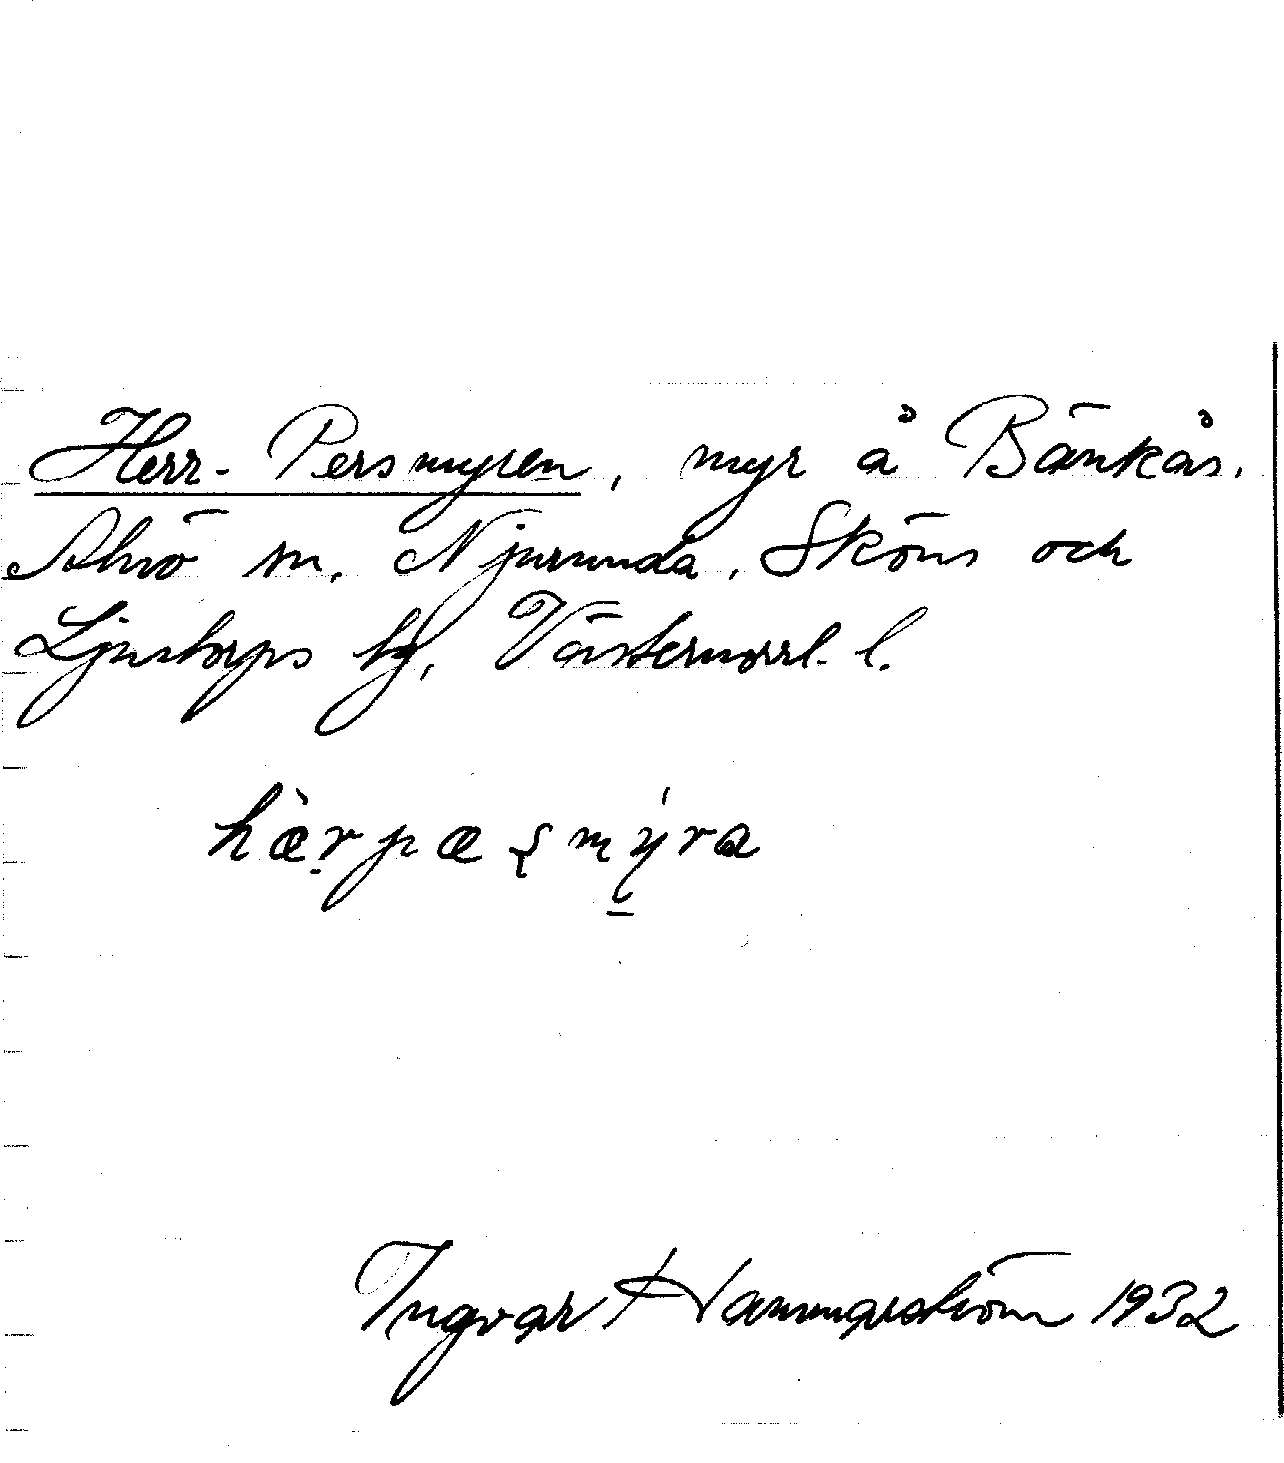 Herr-Persmyren, myr å Bänkås.
Alnö sn. Njurunda, Sköns och
Ljustorps tg, Västernorrl. l.
hæ̀rpæsmýra
Ingvar Hammarström 1932